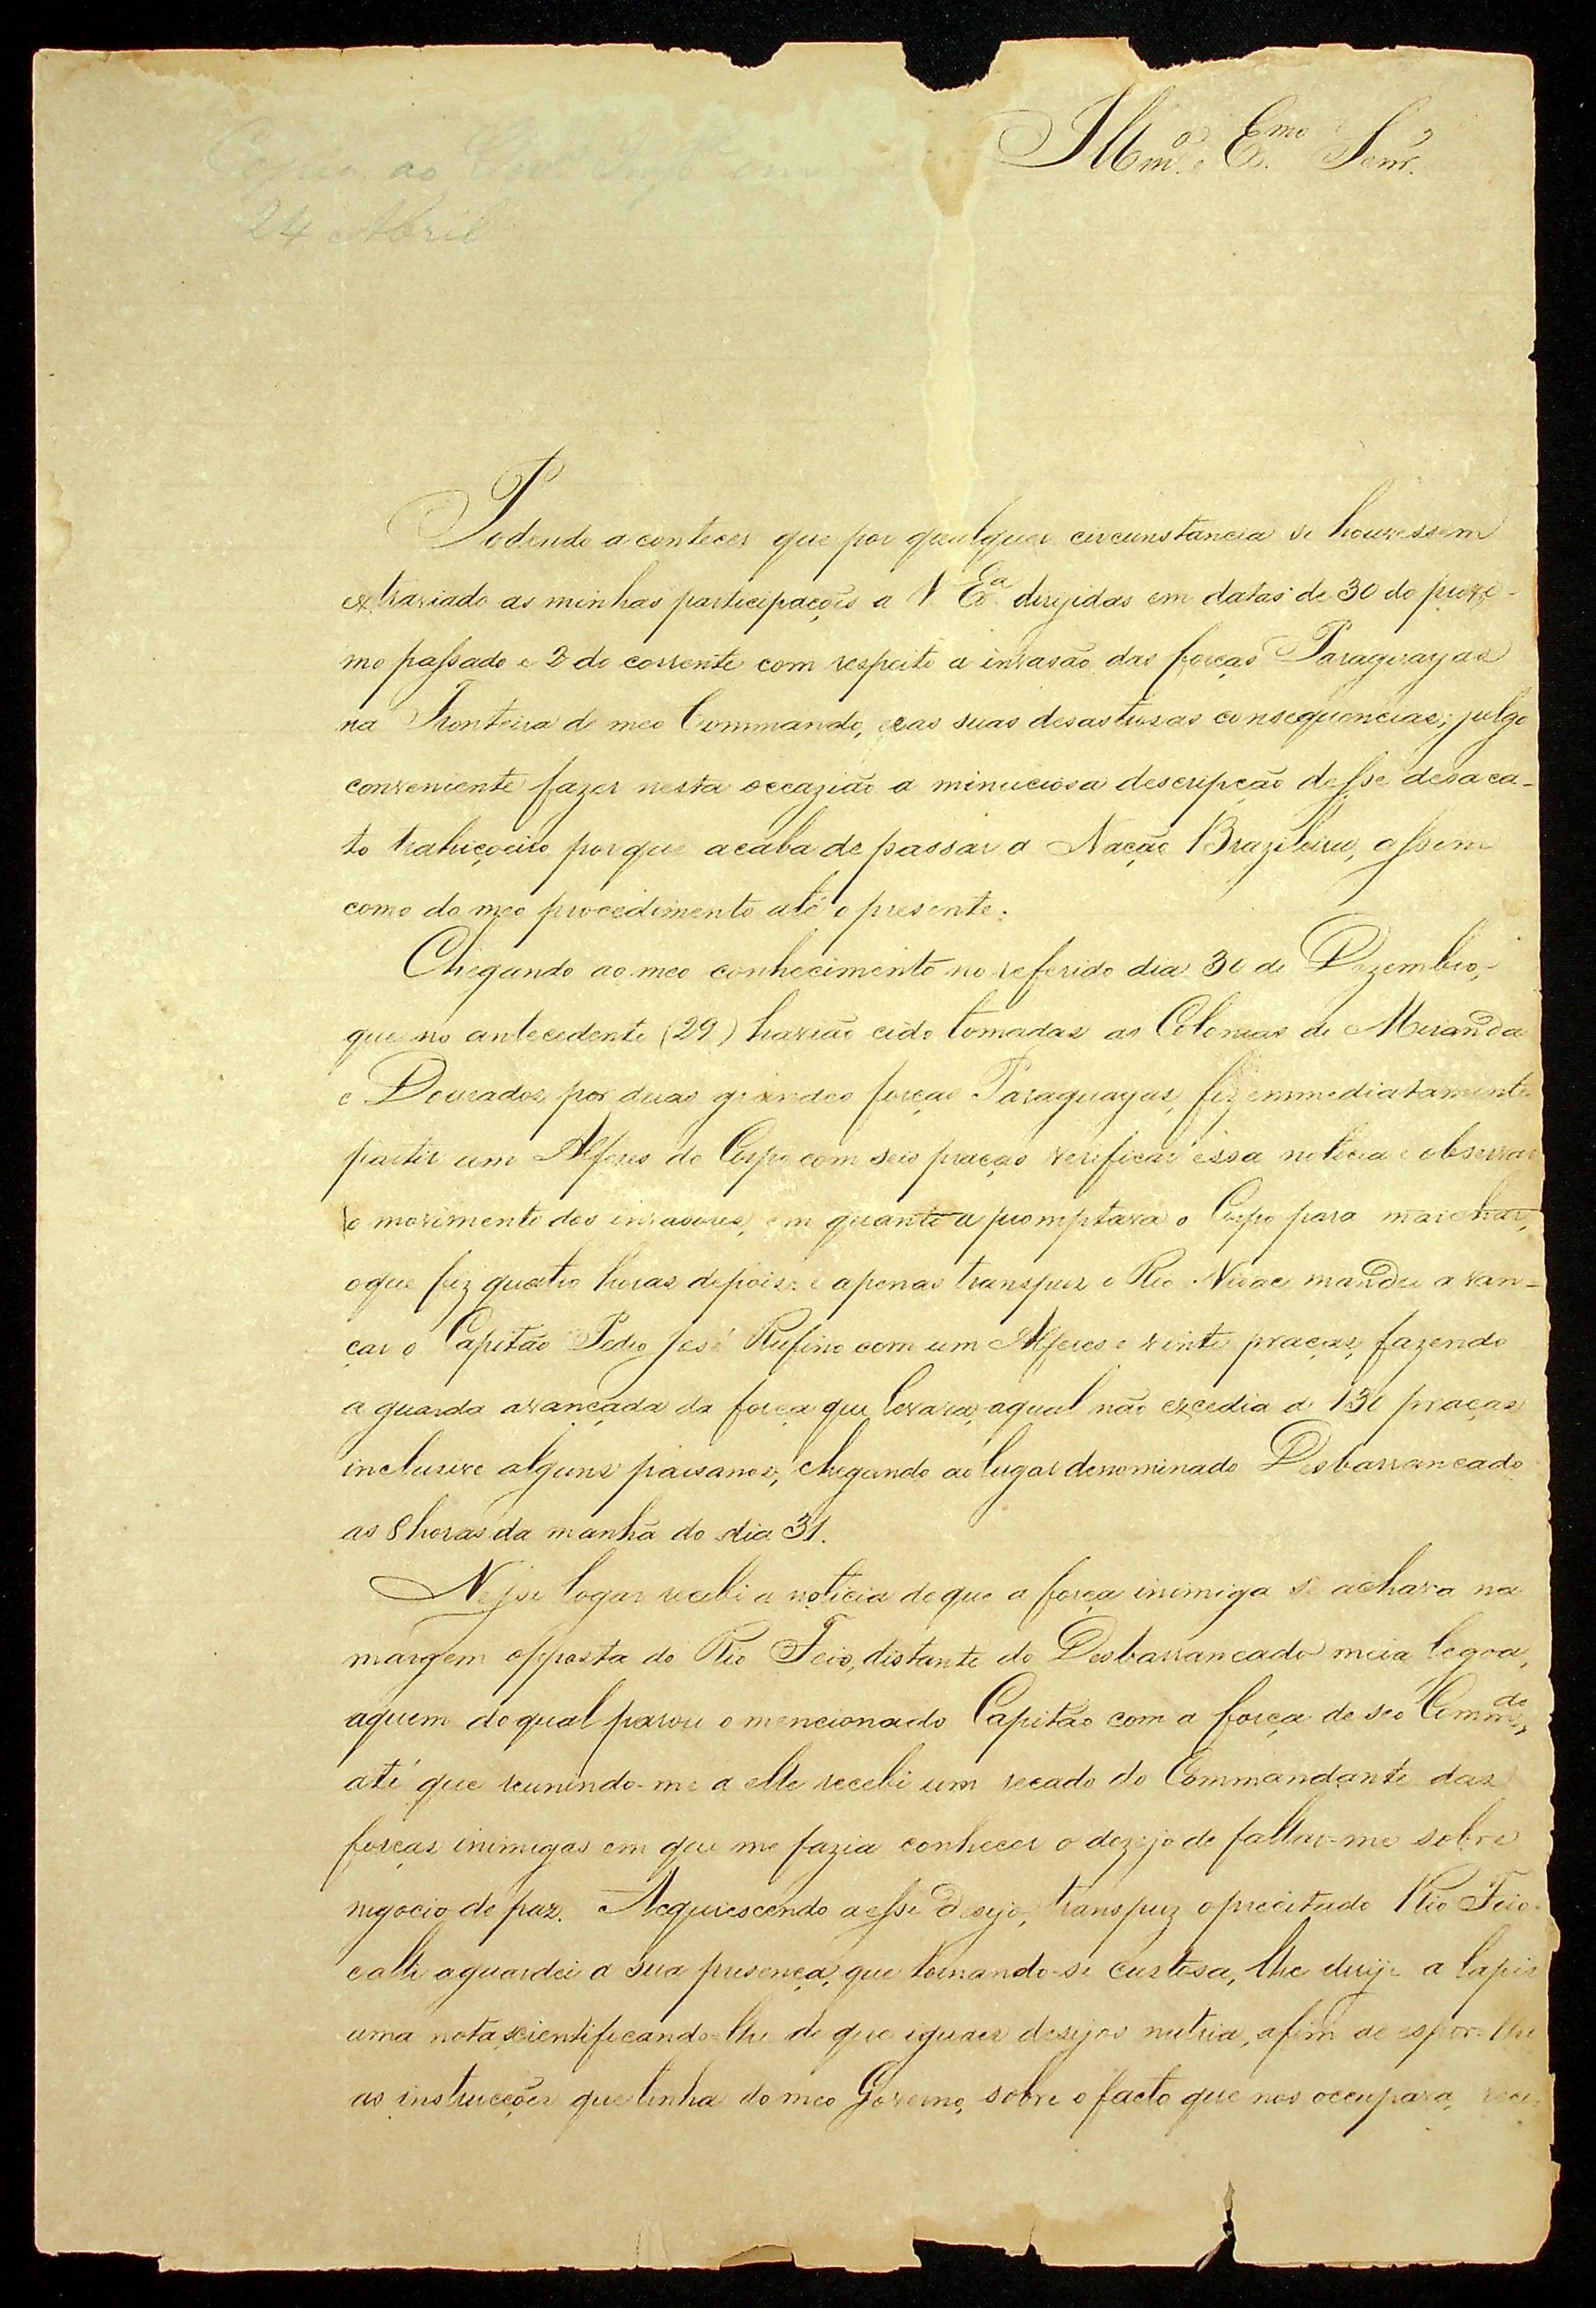 24 Abril
Illmº. e Exmo. Senr.
Podendo acontecer que por qualquer circunstancia se houvessem
extraviado as minhas participações a V. Exª. dirijidas em datas de 30 do proxi-
mo passado e 2 do corrente com respeito a invasão das forças Paraguayas
na Fronteira de meo Commando, e as suas desastrosas consequencias; julgo
conveniente fazer nesta occazião a minuciosa descripção desse desaca-
to trahiçoeiro porque acaba de passar a Nação Brazileira, assim
como do meo procedimento até o presente.
Chegando ao meo conhecimento no referido dia 30 de Dezembro,
que no antecedente (29) havião cido tomadas as Colonias de Miranda
e Dourados, por duas grandes forças Paraguayas, fiz emmediatamente
partir um Alferes do Corpo com seis praças verificar essa noticia e observar
o movimento dos invasores, em quanto a promptava o Corpo para marchar,
o que fiz quatro horas depois: e apenas transpus o Rio Nioac mandei avan-
çar o Capitão Pedro José Rufino com um Alferes e vinte praças, fazendo
a guarda avançada da força que levava, a qual não excedia a 130 praças
inclusive alguns paisanos, chegando ao lugar denominado Desbarrancado
as 8 horas da manhã do dia 31.
Nesse logar recebi a noticia de que a força inimiga se achava na
margem opposta do Rio Feio, distante do Desbarrancado meia legoa,
aquem do qual parou o mencionado Capitão com a força de seo Commdo,
até que reunindo-me a elle recebi um recado do Commandante das
forças inimigas em que me fazia conhecer o dezejo de fallar-me sobre
negocio de paz. Acquiescendo a esse desejo, transpuz o precitado Rio Feio
e alli aguardei a sua presença, que tornando-se custosa, lhe dirije a lapis
uma nota scientificando-lhe de que iguaes desejos nutria, afim de espor-lhe
as instrucções que tinha do meo Governo, sobre o facto que nos occupava,